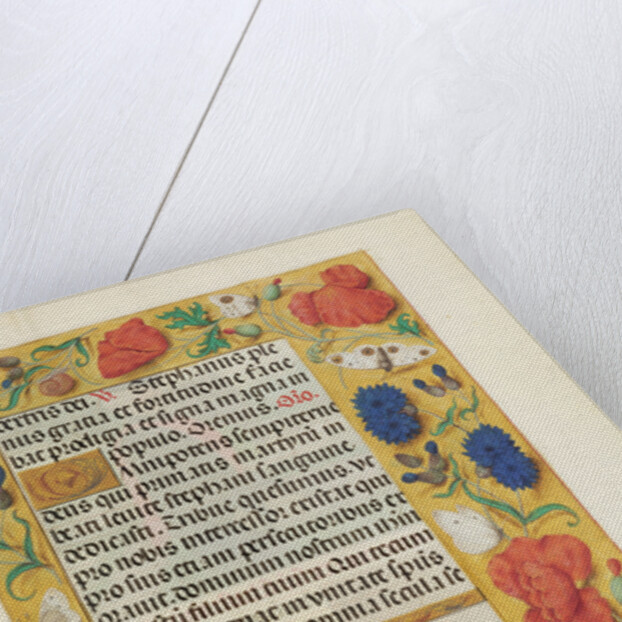 ternis dei. V. Stephanus ple
nus gratia et fortitudine facie
bat prodigia et signa magna in
populo. Oremus. Oro.
Omnipotens sempiterne
deus qui primitias martyrii in
beati leuite stephani sanguine
dedicasti. Tribue quesumus. vt
pro nobis intercessor existat qui
pro suis etiam persecutoribus ex
orauit dominum nostrum ihm
filium tuum Qui tecum
in vnitate spūs
omnia secula se